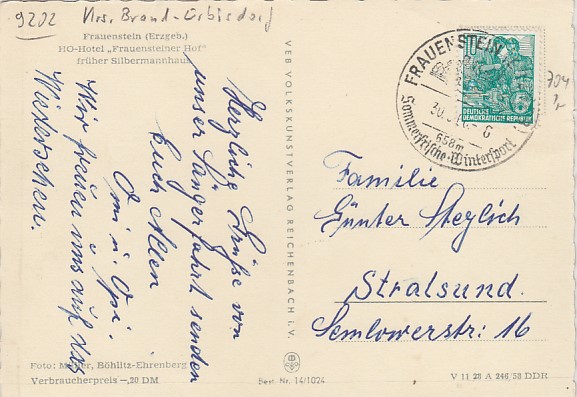 9202 Krs. Brand-Erbisdorf
Frauenstein (Erzgeb.)
HO-Hotel „Frauensteiner Hof"
früher Silbermannhaus
Herzliche Grüße von
unser Sängerfahrt senden
Euch Allen
Omi u. Opi.
Wir freuen uns auf das
Wiedersehen.
Foto: Müller, Böhlitz-Ehrenberg
Verbraucherpreis -,20 DM
VEB VOLKSKUNSTVERLAG REICHENBACH I. V.
Best. Nr. 14/1024
FRAUENSTEIN
658m
Sommerfrische-Wintersport
10
DEUTSCHE
DEMOKRATISCHE REPUBLIK
Familie
Günter Steglich
Stralsund.
Semlowerstr: 16
V 11 28 A 246/58 DDR